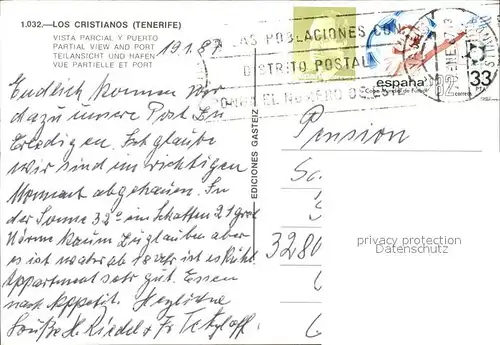 1.032.—LOS CRISTIANOS (TENERIFE)
VISTA PARCIAL Y PUERTO
PARTIAL VIEW AND PORT
TEILANSICHT UND HAFEN
VUE PARTIELLE ET PORT
19.1.87
LAS POBLACIONES CON
DISTRITO POSTAL
PONGA EL NUMERO DE
españa
33
correos
EDICIONES GASTEIZ
Endlich kommen wir
dazu unsere Post zu
Erledigen. Ich glaube
wir sind im richtigen
Moment abgehauen. In
der Sonne 32° im Schatten 21 grad
Wärme kaum zu glauben aber
es ist wahr ab 18 Uhr ist es kühl
Appartment sehr gut. Essen
nach Appetit. Herzliche
Grüße H. Riedel + Fr
Pension
3280
privacy protection
Datenschutz